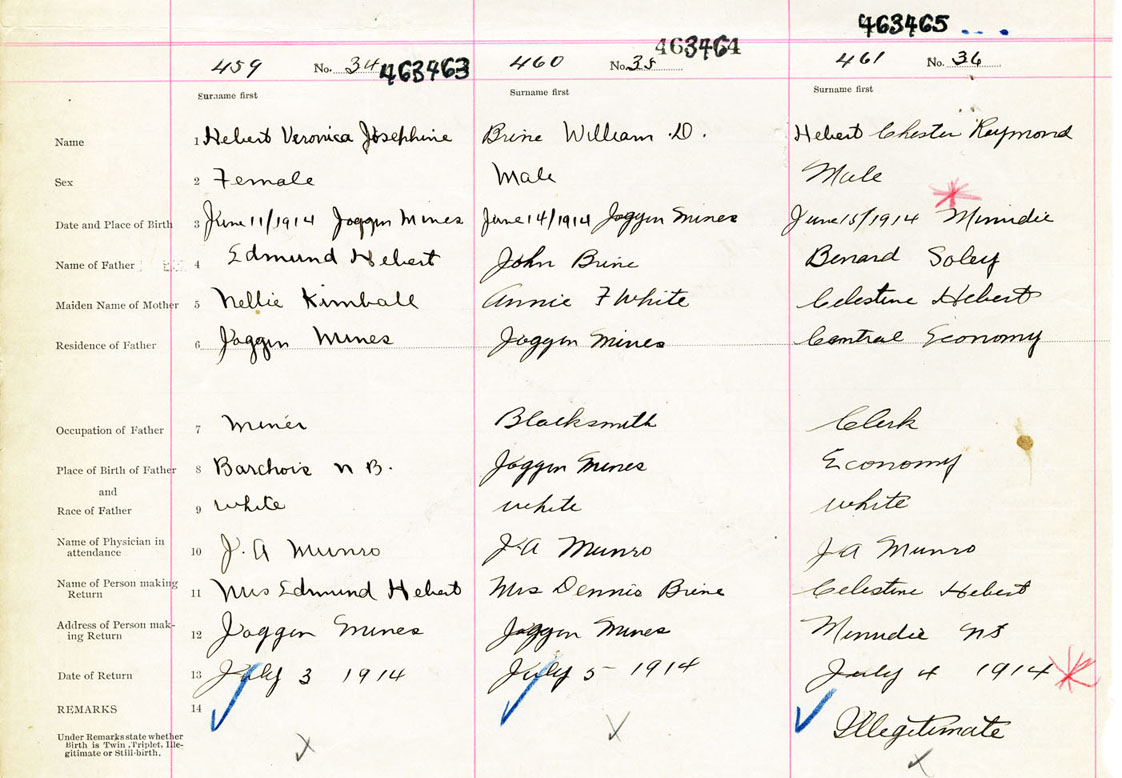 463465
463464
459 No. 34 463463 460 No. 35 461 No. 36
Surname first Surname first Surname first
Name 1 Hebert Veronica Josephine Brine William D. Hebert Chester Raymond
Sex 2 Female Male Male
Date and Place of Birth 3 June 11/1914 Joggin Mines June 14/1914 Joggin Mines June 15/1914 Minudie
Name of Father 4 Edmund Hebert John Brine Benard Soley
Maiden Name of Mother 5 Nellie Kimball Annie F White Celestine Hebert
Residence of Father 6 Joggin Mines Joggin Mines Central Economy
Occupation of Father 7 Miner Blacksmith Clerk
Place of Birth of Father 8 Barchois N B. Joggin Mines Economy
and
Race of Father 9 white white white
Name of Physician in
attendance 10 J. A Munro J A Munro J A Munro
Name of Person making
Return 11 Mrs Edmund Hebert Mrs Dennis Brine Celestine Hebert
Address of Person mak-
ing Return 12 Joggin Mines Joggin Mines Minudie NS
Date of Return 13 July 3 1914 July 5 1914 July 4 1914
REMARKS 14 Illegitimate
Under Remarks state whether
Birth is Twin, Triplet, Ille-
gitimate or Still-birth.